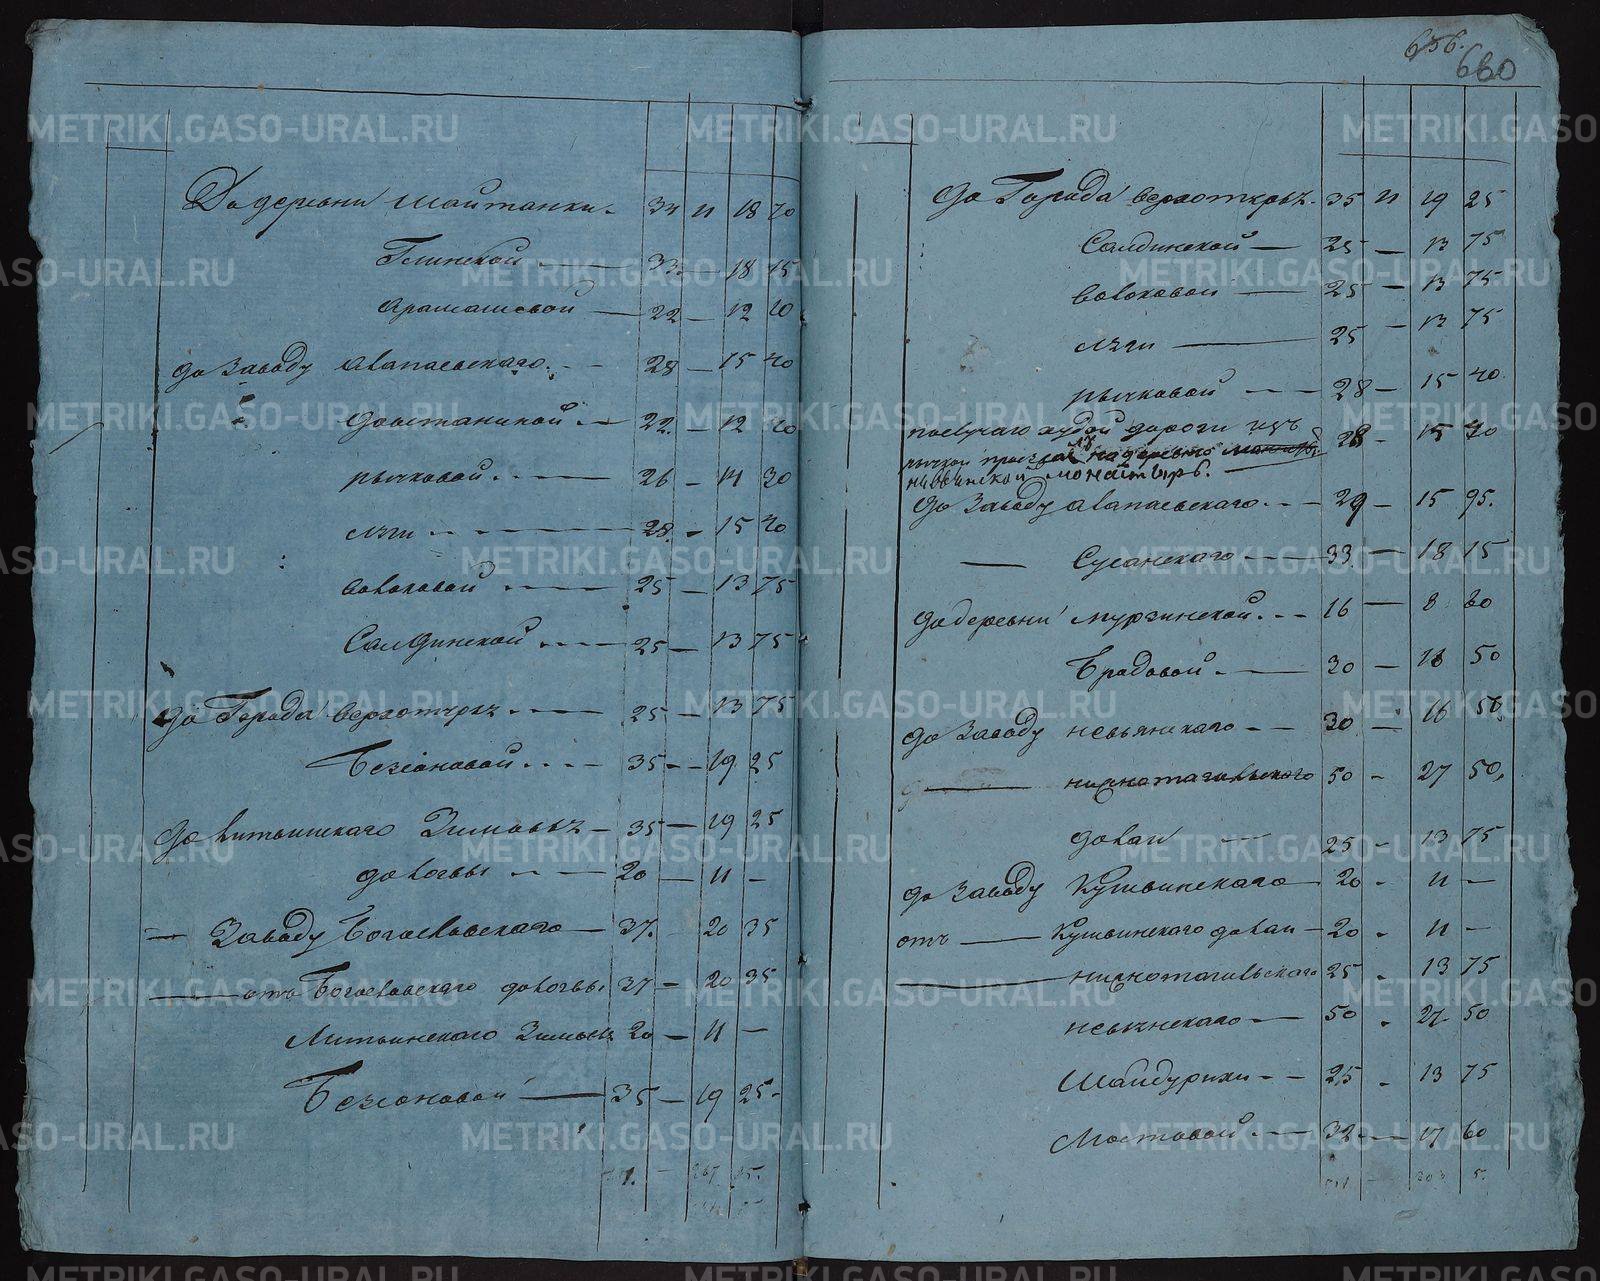 656.
660
До деревни Шайтанки. 34 11 18 70
Глинской 33. 18 15
Арамашевой 22 12 10
до Заводу Алапаевскаго. 28 15 40
22. 12 10
рычковой 26 14 30
Ляги 28. 15 40
Волоковой 25 13 75
Салдинской 25 13 75
до Города Верхотурья 25 13 75
Безсоновой 35 19 25
до Литвинскаго Зимовья 35 19 25
до Ловы 20 11
Заводу Богословскаго 37. 20 35
отъ Богословскаго до 37 20 35
Литвинскаго Зимовья 20 11
Безсоновой 35 19 25
до Города Верхотурья 35 11 19 25
Салдинской 25 13 75
Волоковой 25 13 75
Ляги 25 13 75
рычковой 28 15 40
худой дороги изъ 28 15 40
монастырь.
до Заводу Алапаевскаго 29 15 95.
Сусанскаго 33. 18 15
до деревни Мурзинской 16 8 80
Бродовой 30 16 50
до Заводу Невьянскаго 30 16 50
нижнотагильскаго 50 27 50
до Лаи 25 13 75
до Заводу Кушвинскаго 20 11
отъ Кушвинскаго до Лаи 20 11
нижнотагильскаго 25 13 75
невьянскаго 50 27 50
Шайдурихи 25 13 75
Мостовой 32 17 60
METRIKI.GASO-URAL.RU